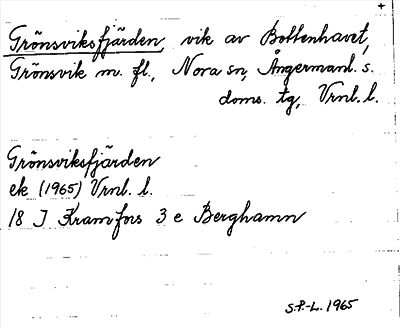 +
Grönsviksfjärden, vik av Bottenhavet,
Grönsvik m. fl., Nora sn, Ångermanl. s.
doms. tg, Vrnl. l.
Grönsviksfjärden
ek (1965) Vrnl. l.
18 J Kramfors 3 e Berghamn
S.P.-L. 1965